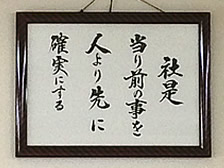 社是
当り前の事を
人より先に
確実にする